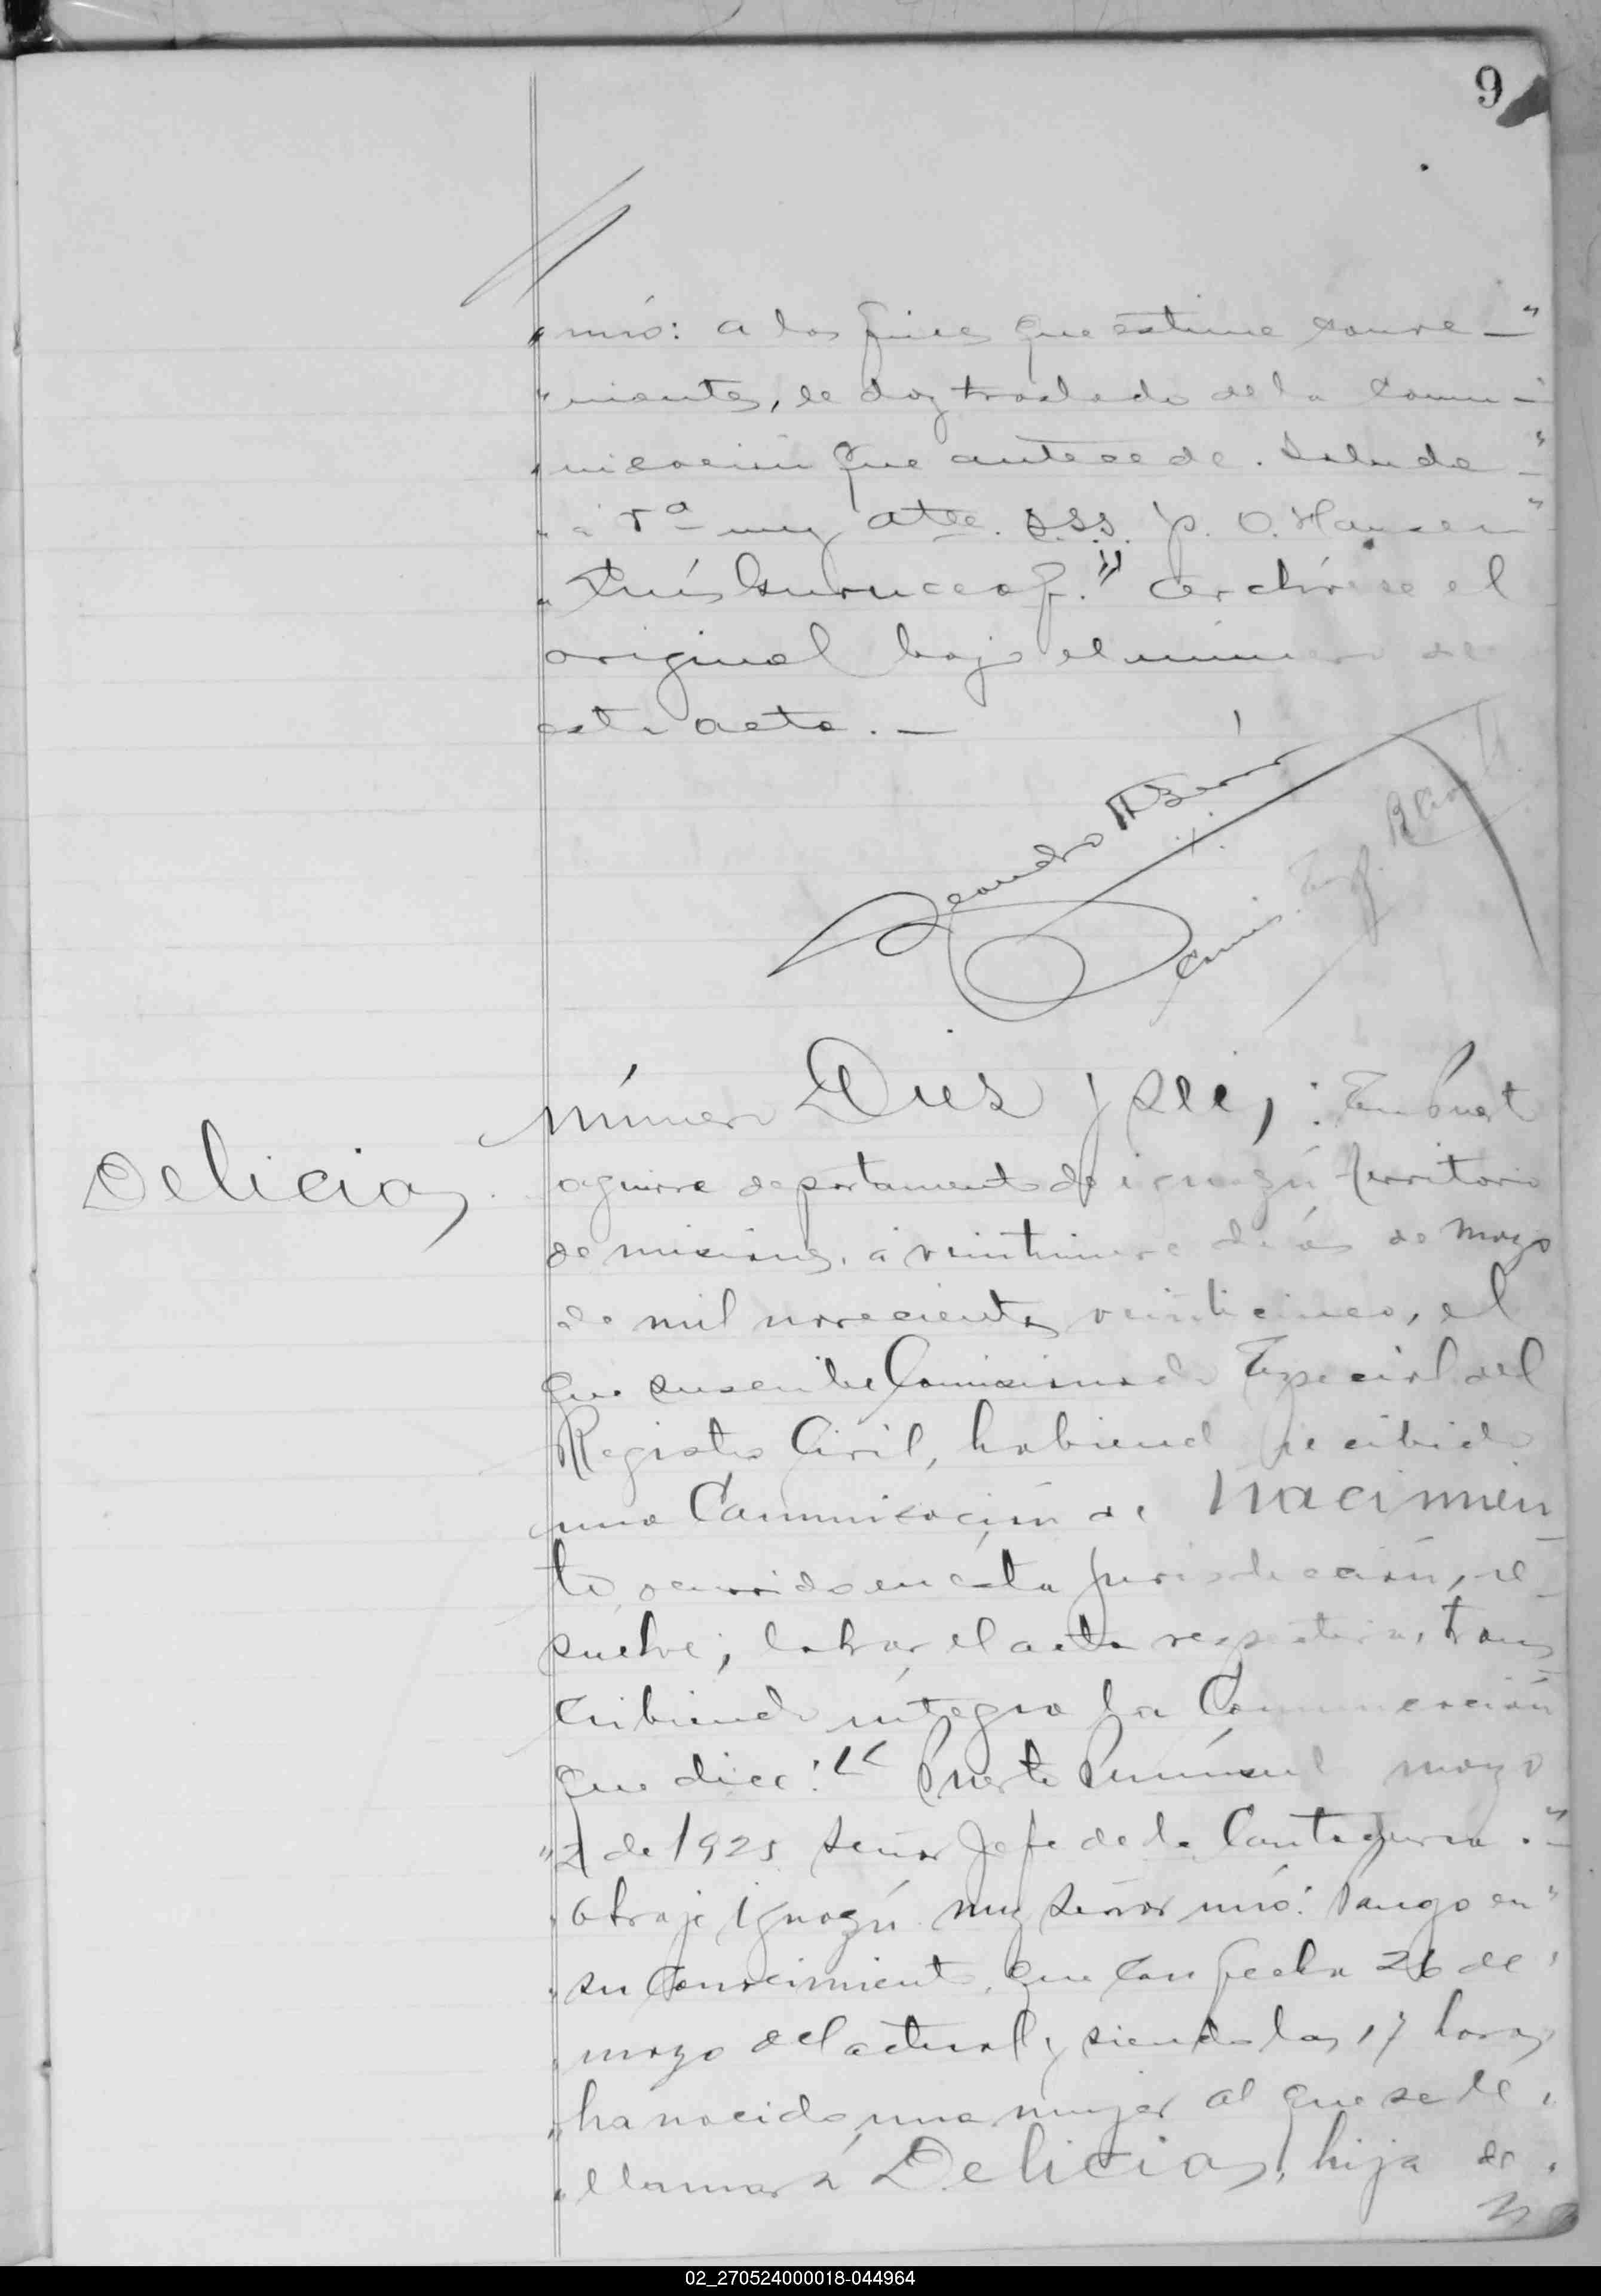 9
"mio: a los fines que estime conve-"
"nientes, le doy traslado de la comu-"
"nicación que antecede. Saludo-"
"a Va muy atte. S.S.S. p. O. Hansen"
"Luis" Archívese el
original bajo el número de
esta acta.-
Leandro
Comis. Esp. R. Civil
Número Diez y seis,: En Puert
aguirre departamento de iguazú territorio
de misiones, á veintinueve días de mayo
de mil novecientos veinticinco, el
que suscribe Comisionado Especial del
Registro Civil, habiend recibido
una Comunicación de Nacimien
to, ocurrido en ésta jurisdicción, re-
suelve; labrar el acta respectiva, trans
cribiendo íntegra la Comunicación
que dice: "Puerto Península mayo
" de 1925 Señor Jefe de la Contaduría.-"
"Obraje iguazú. muy señor mío: Pongo en"
"su Conocimiento, que con fecha 26 de"
"mayo del actual y siendo las 17 horas
"ha nacido una mujer al que se le"
"llamará Delicia, hija de"
Delicia
02_270524000018-044964